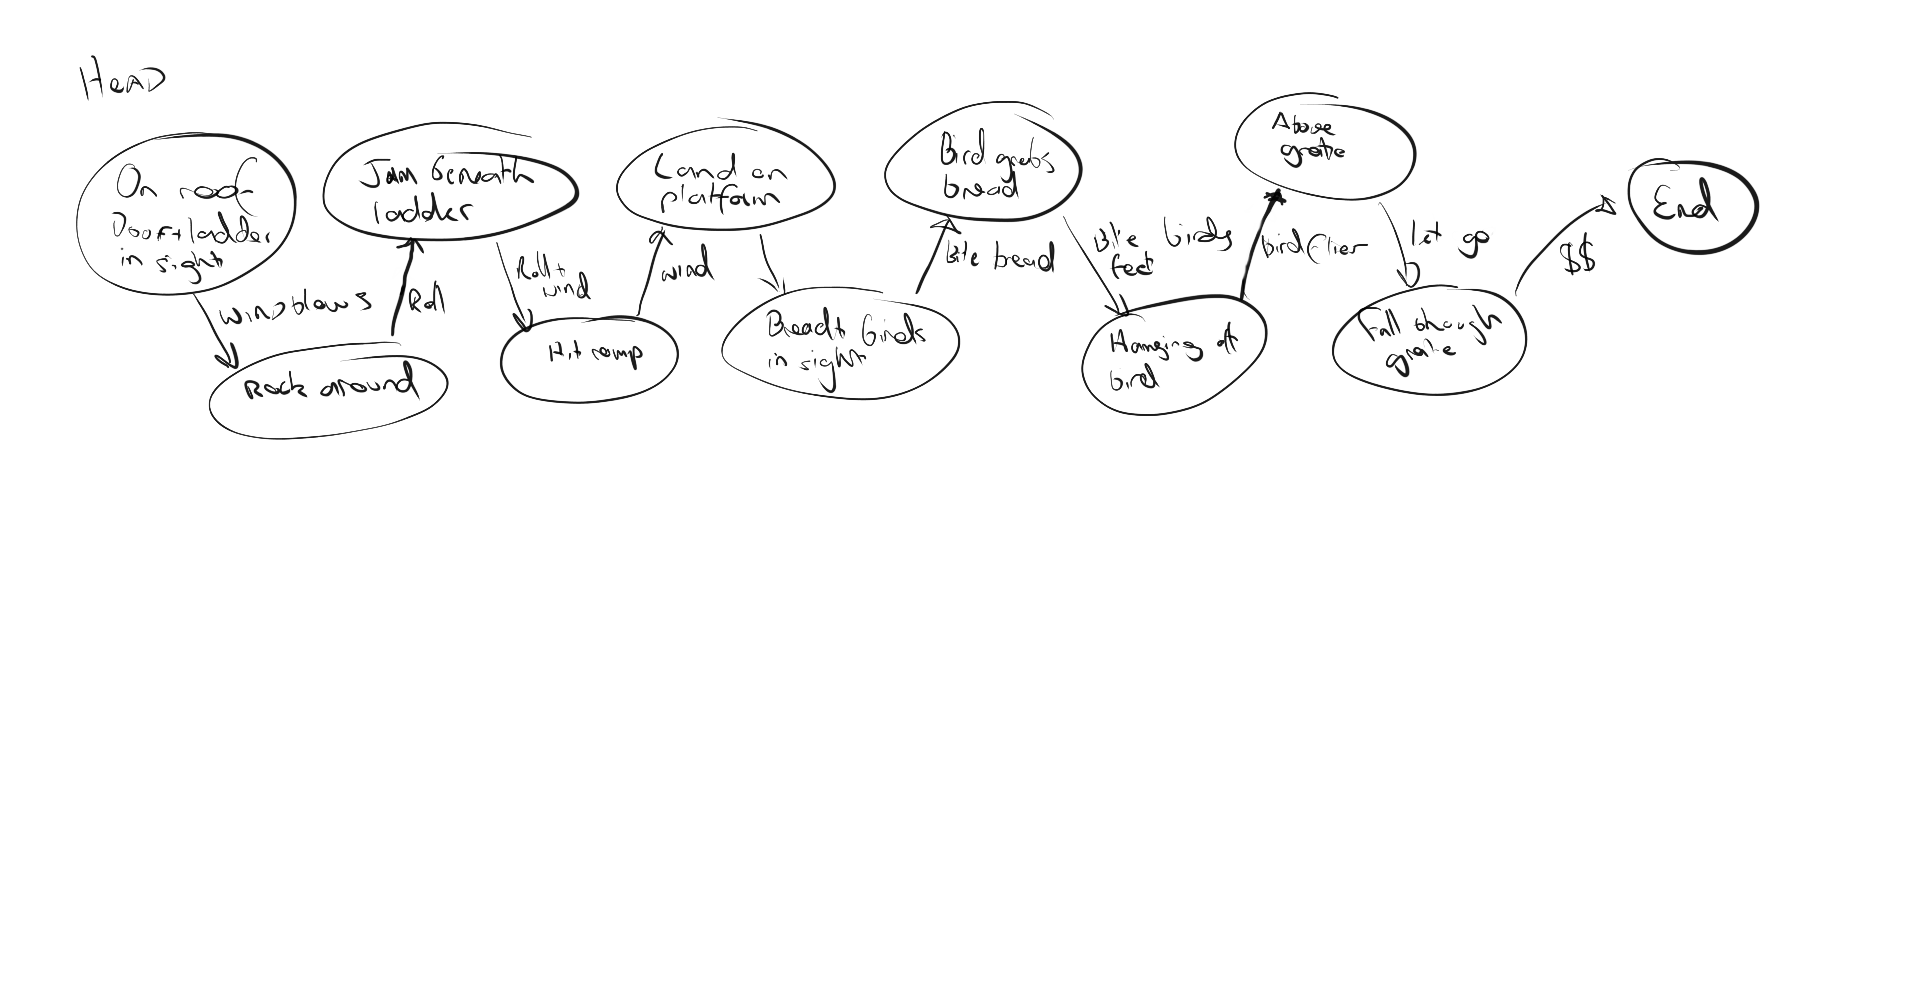 HEAD
On roof
Door + ladder
in sight
WIND blows
Rock around
Roll
Jam beneath
ladder
Roll +
wind
Hit ramp
wind
Land on
platform
Bread + birds
in sight
Bite bread
Bird grabs
bread
Bite birds
feet
Hanging of
bird
bird flies
Above
grate
let go
Fall through
grate
$$
End